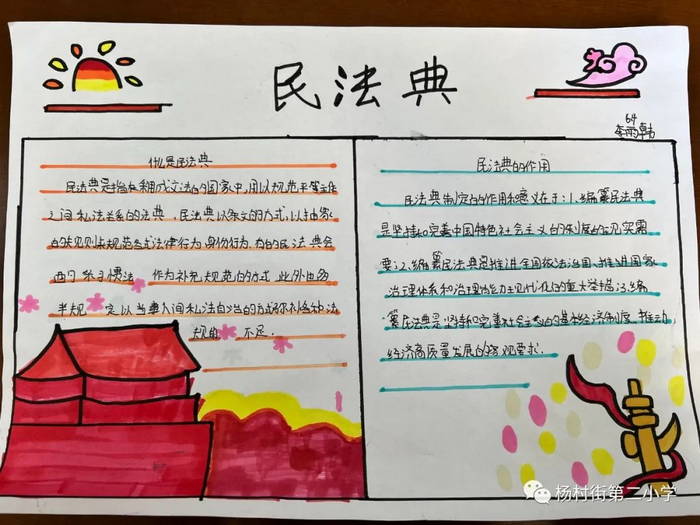 民法典
64
李雨韩
什么是民法典
民法典是指在采用成文法的国家中,用以规范平等主体
之间私法关系的法典,民法典以条文的方式,以抽象
的规则来规范各式法律行为,身份行为,有的民法典会
酌予习惯法 作为补充规范的方式,此外也多
半规 定以当事人间私法自治的方式弥补成文法
规的 不足.
民法典的作用
民法典制定的作用和意义在于:1.编纂民法典
是坚持和完善中国特色社会主义的制度的现实需
要;2.编纂民法典是推进全国依法治国、推进国家
治理体系和治理能力现代化的重大举措;3.编
纂民法典是坚持和完善社会主义的基本经济制度、推动
经济高质量发展的客观要求.
杨村街第二小学